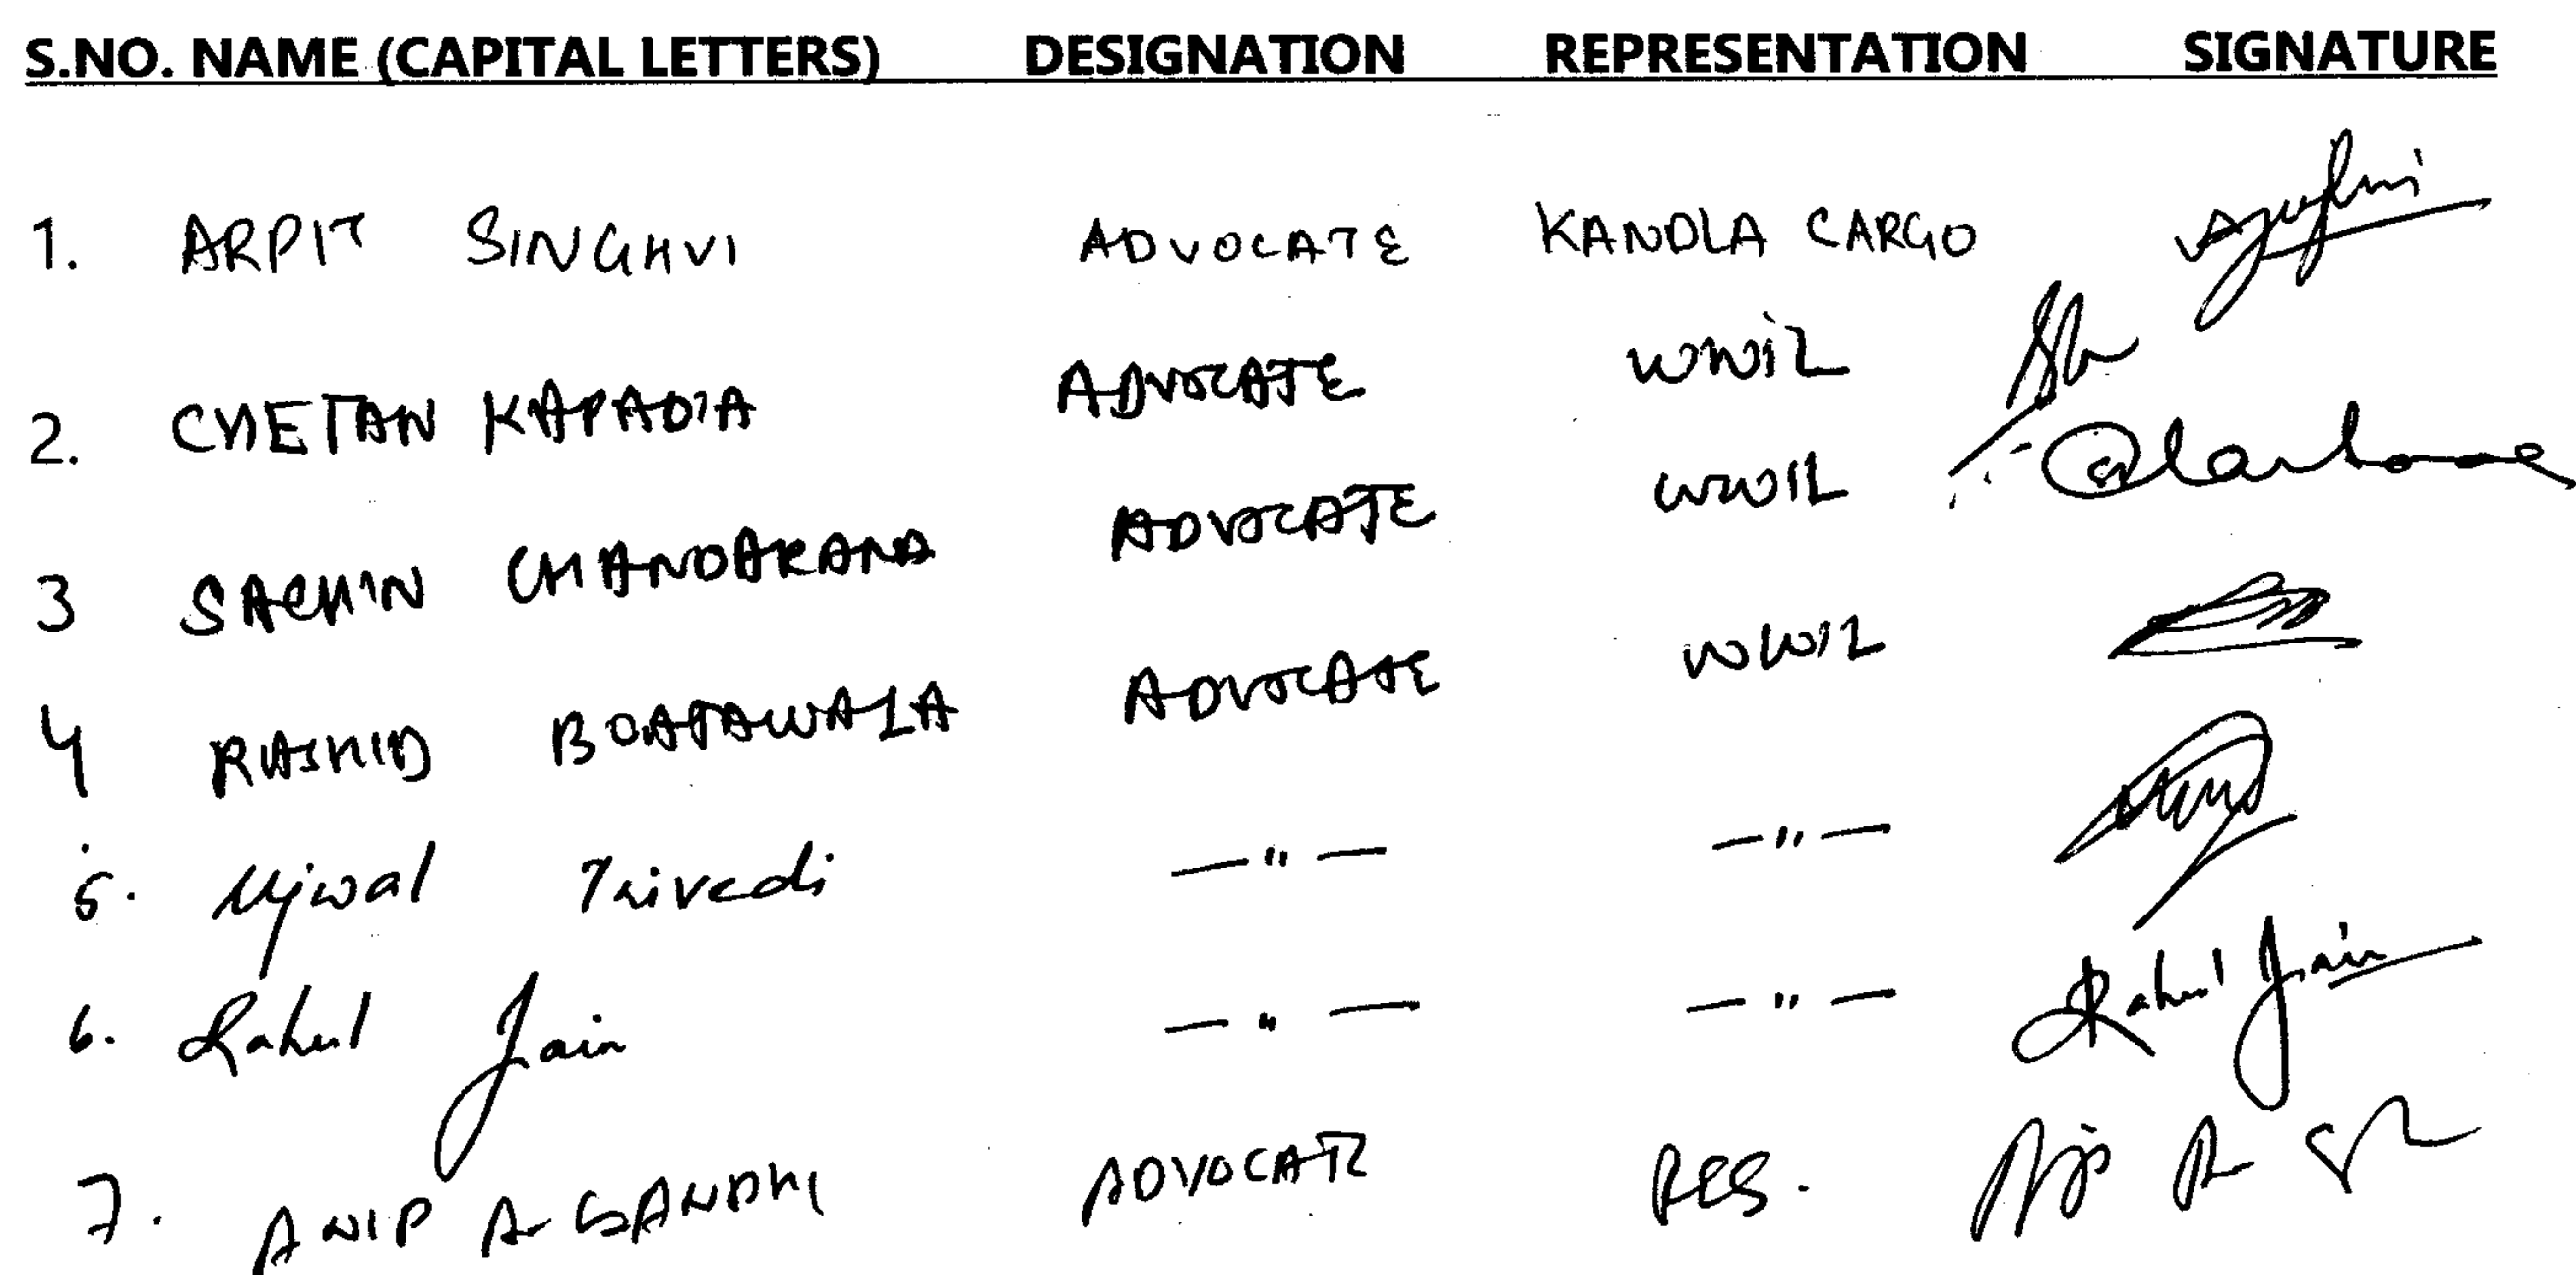 S.NO. NAME (CAPITAL LETTERS) DESIGNATION REPRESENTATION SIGNATURE
1. ARPIT SINGHVI ADVOCATE KANDLA CARGO
2. CHETAN KAPADIA ADVOCATE WWIL
3 SACHIN CHANDARANA ADVOCATE WWIL
4 RASHID BOATAWALA ADVOCATE WWIL
5. Ujwal Trivedi —"— —"—
6. Rahul Jain —"— —"— Rahul Jain
7. ANIP A. GANDHI ADVOCATE RES.